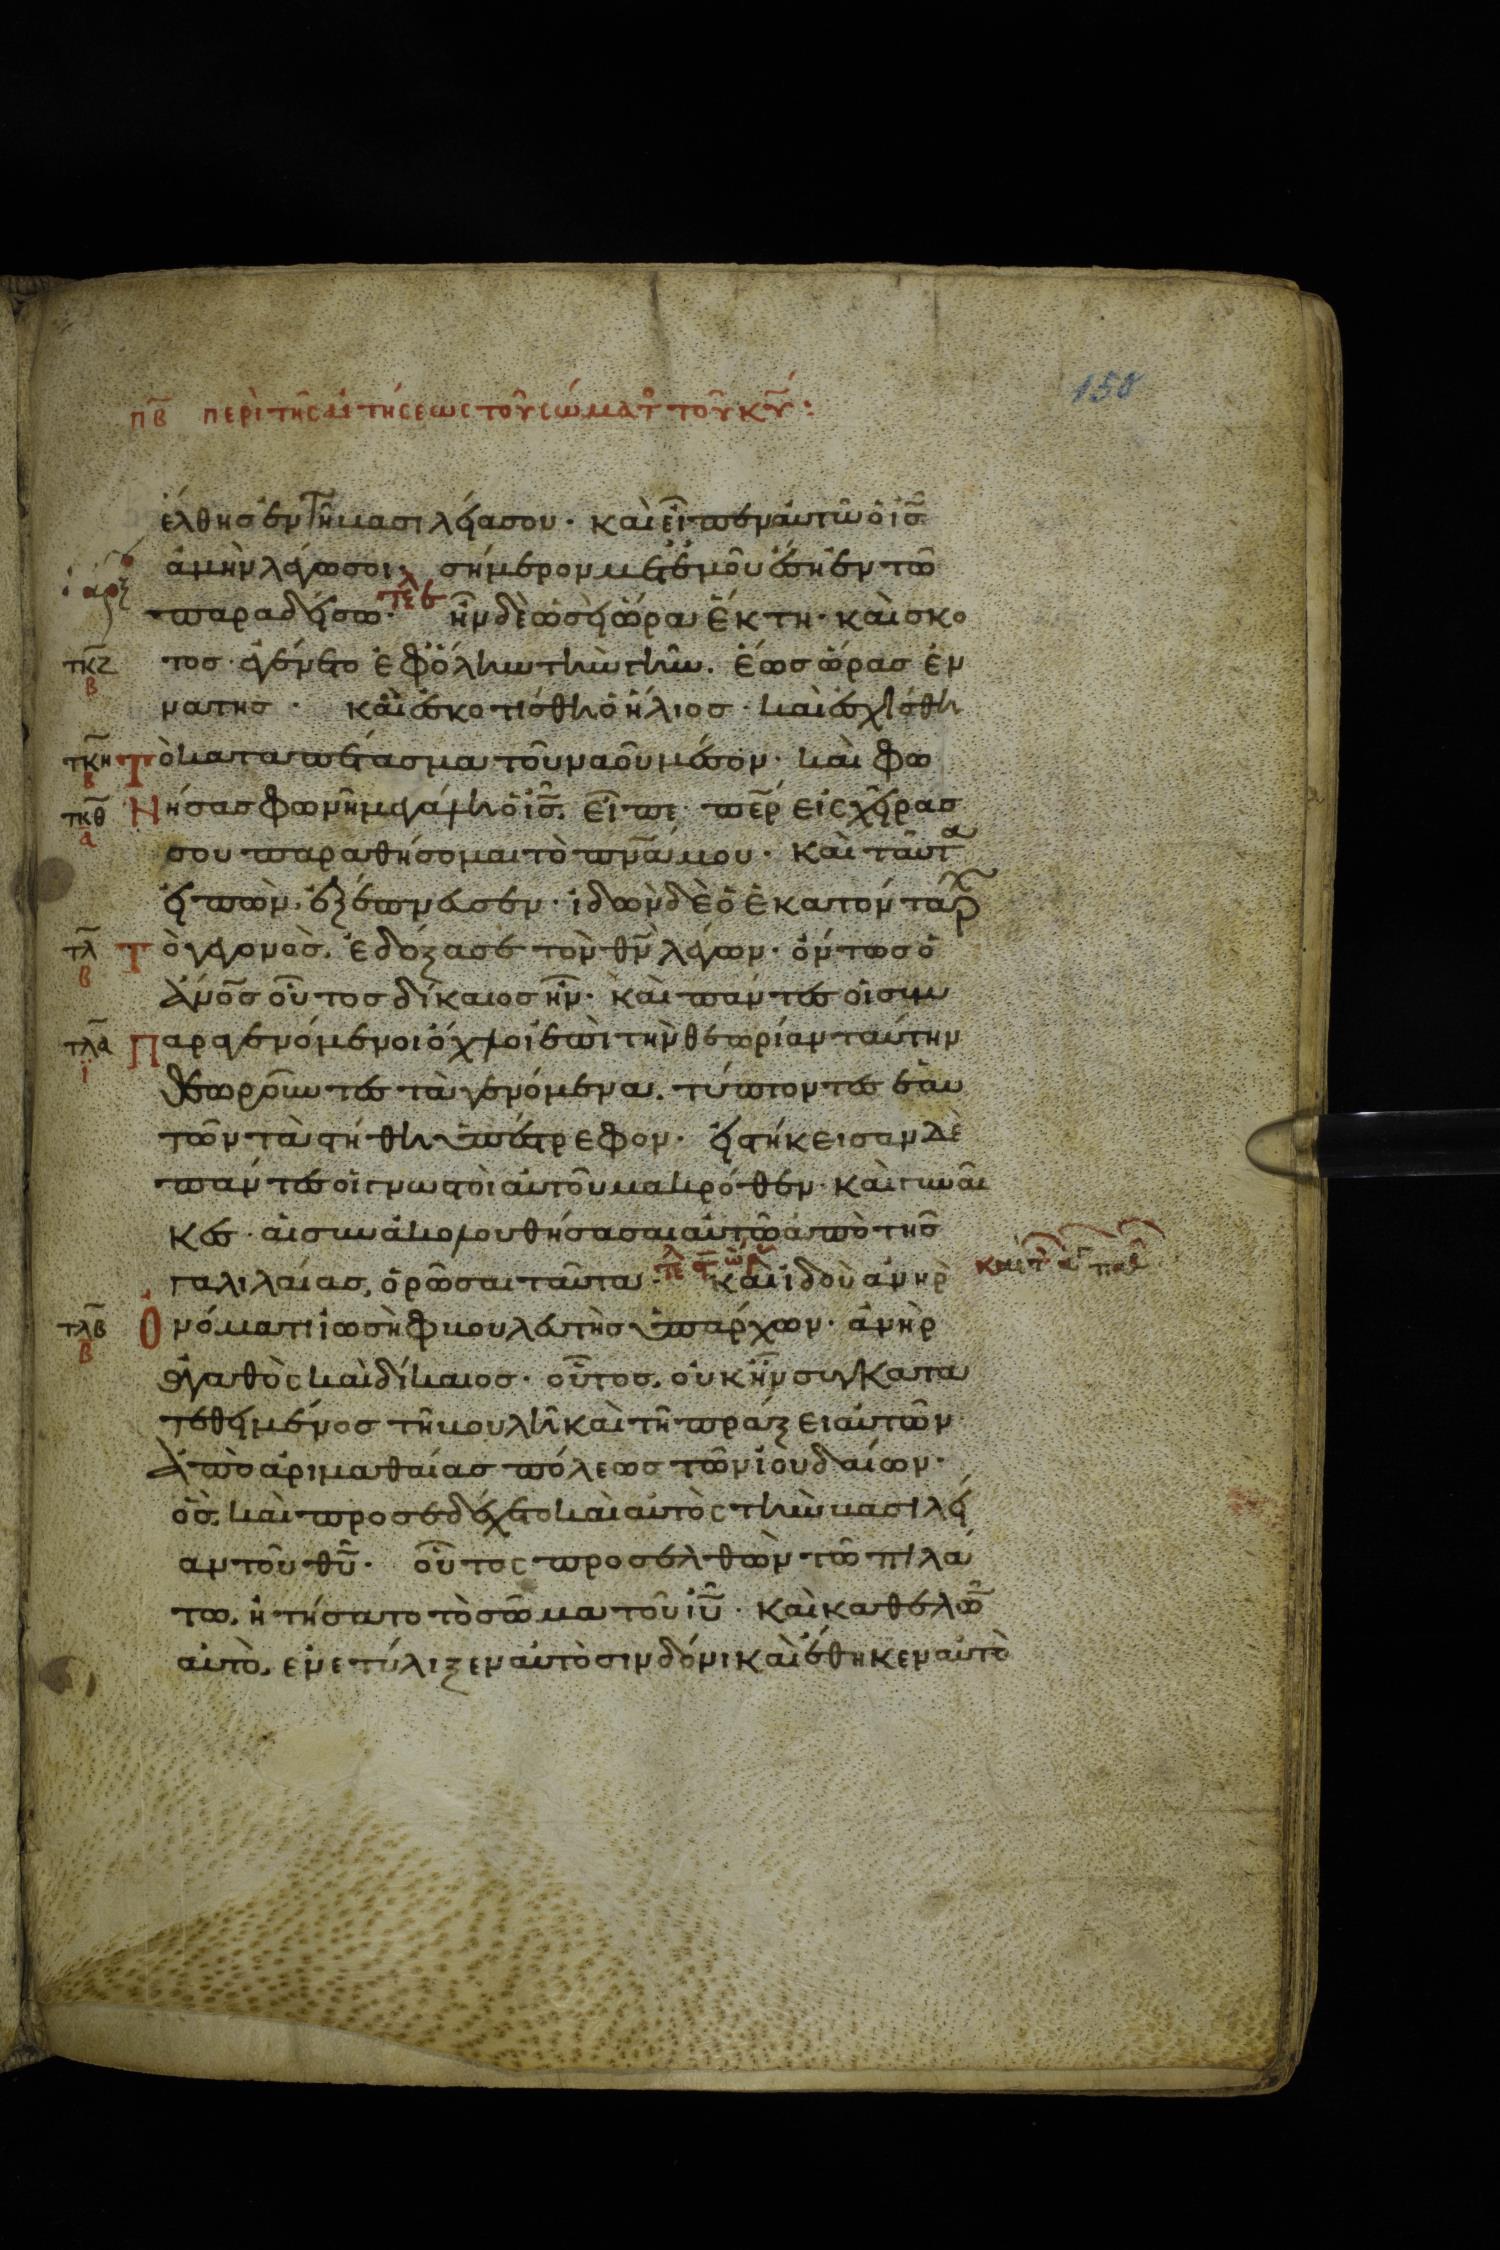 150
πβ περὶ τῆς αἰτήσεως τοῦ σώματ τοῦ κυ:
ἔλθης ἐν τῆ βασιλεία σου· καὶ εἶπεν αὐτῶ ὁ ις
ἀμὴν λέγω σοι· σήμερον μετ ἐμοῦ ἔση ἐν τῶ
παραδείσω· ἦν δὲ ὡσεὶ ὥρα ἕκτη· καὶ σκο
τκζ β τος ἐγένετο ἐφ ὅλην τὴν γῆν. ἕως ὥρας ἐν
νατης· καὶ ἐσκοτίσθη ὁ ἥλιος· καὶ ἐσχίσθη
τκη β Τὸ καταπέτασμα τοῦ ναοῦ μέσον· καὶ φω
τκθ α Νήσας φωνῆ μεγάλη ὁ ις. εἶπε· περ εἰς χεῖρας
σου παραθήσομαι τὸ πνα μου· καὶ ταῦτα
εἰπὼν, ἐξέπνευσεν· ἰδὼν δὲ ὁ ἑκατόνταρχ
τλ β Τὸ γενομενον, ἐδόξασε τὸν θν λέγων· ὄντως ὁ
ἀνος οὗτος δίκαιος ἦν· καὶ πάντες οἱ συν
τλα ι Παραγενόμενοι ὄχλοι ἐπὶ τὴν θεωρίαν ταύτην
θεωροῦντες τὰ γενόμενα, τύπτοντες ἑαυ
τῶν τὰ στήθη ὑπέστρεφον· εἱστήκεισαν δὲ
πάντες οἱ γνωστοὶ αὐτοῦ μακρόθεν· καὶ γυναῖ
κες· αἱ συνακολουθήσασαι αὐτῶ ἀπὸ τῆς
γαλιλαίας, ὁρῶσαι ταῦτα· καὶ ἰδοὺ ἀνὴρ
τλβ β Ὀνόματι ἰωσὴφ βουλευτὴς ὑπάρχων· ἀνὴρ
ἀγαθὸς καὶ δίκαιος· οὗτος, οὐκ ἦν συγκατα
τεθειμένος τῆ βουλῆ καὶ τῆ πράξει αὐτῶν
ἀπὸ ἀριμαθαίας πόλεως τῶν ἰουδαίων·
ὃς, καὶ προσεδέχετο καὶ αὐτὸς τὴν βασιλεί
αν τοῦ θυ· οὗτος προσελθὼν τῶ πιλά
τω, ἠτήσατο τὸ σῶμα τοῦ ιυ· καὶ καθελὼν
αὐτὸ, ἐνετύλιξεν αὐτὸ σινδόνι καὶ ἔθηκεν αὐτὸ